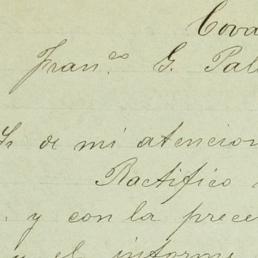 Cova
Fran.co G. Pal
de mi atencion
Ractifico
y con la prece
y el informe